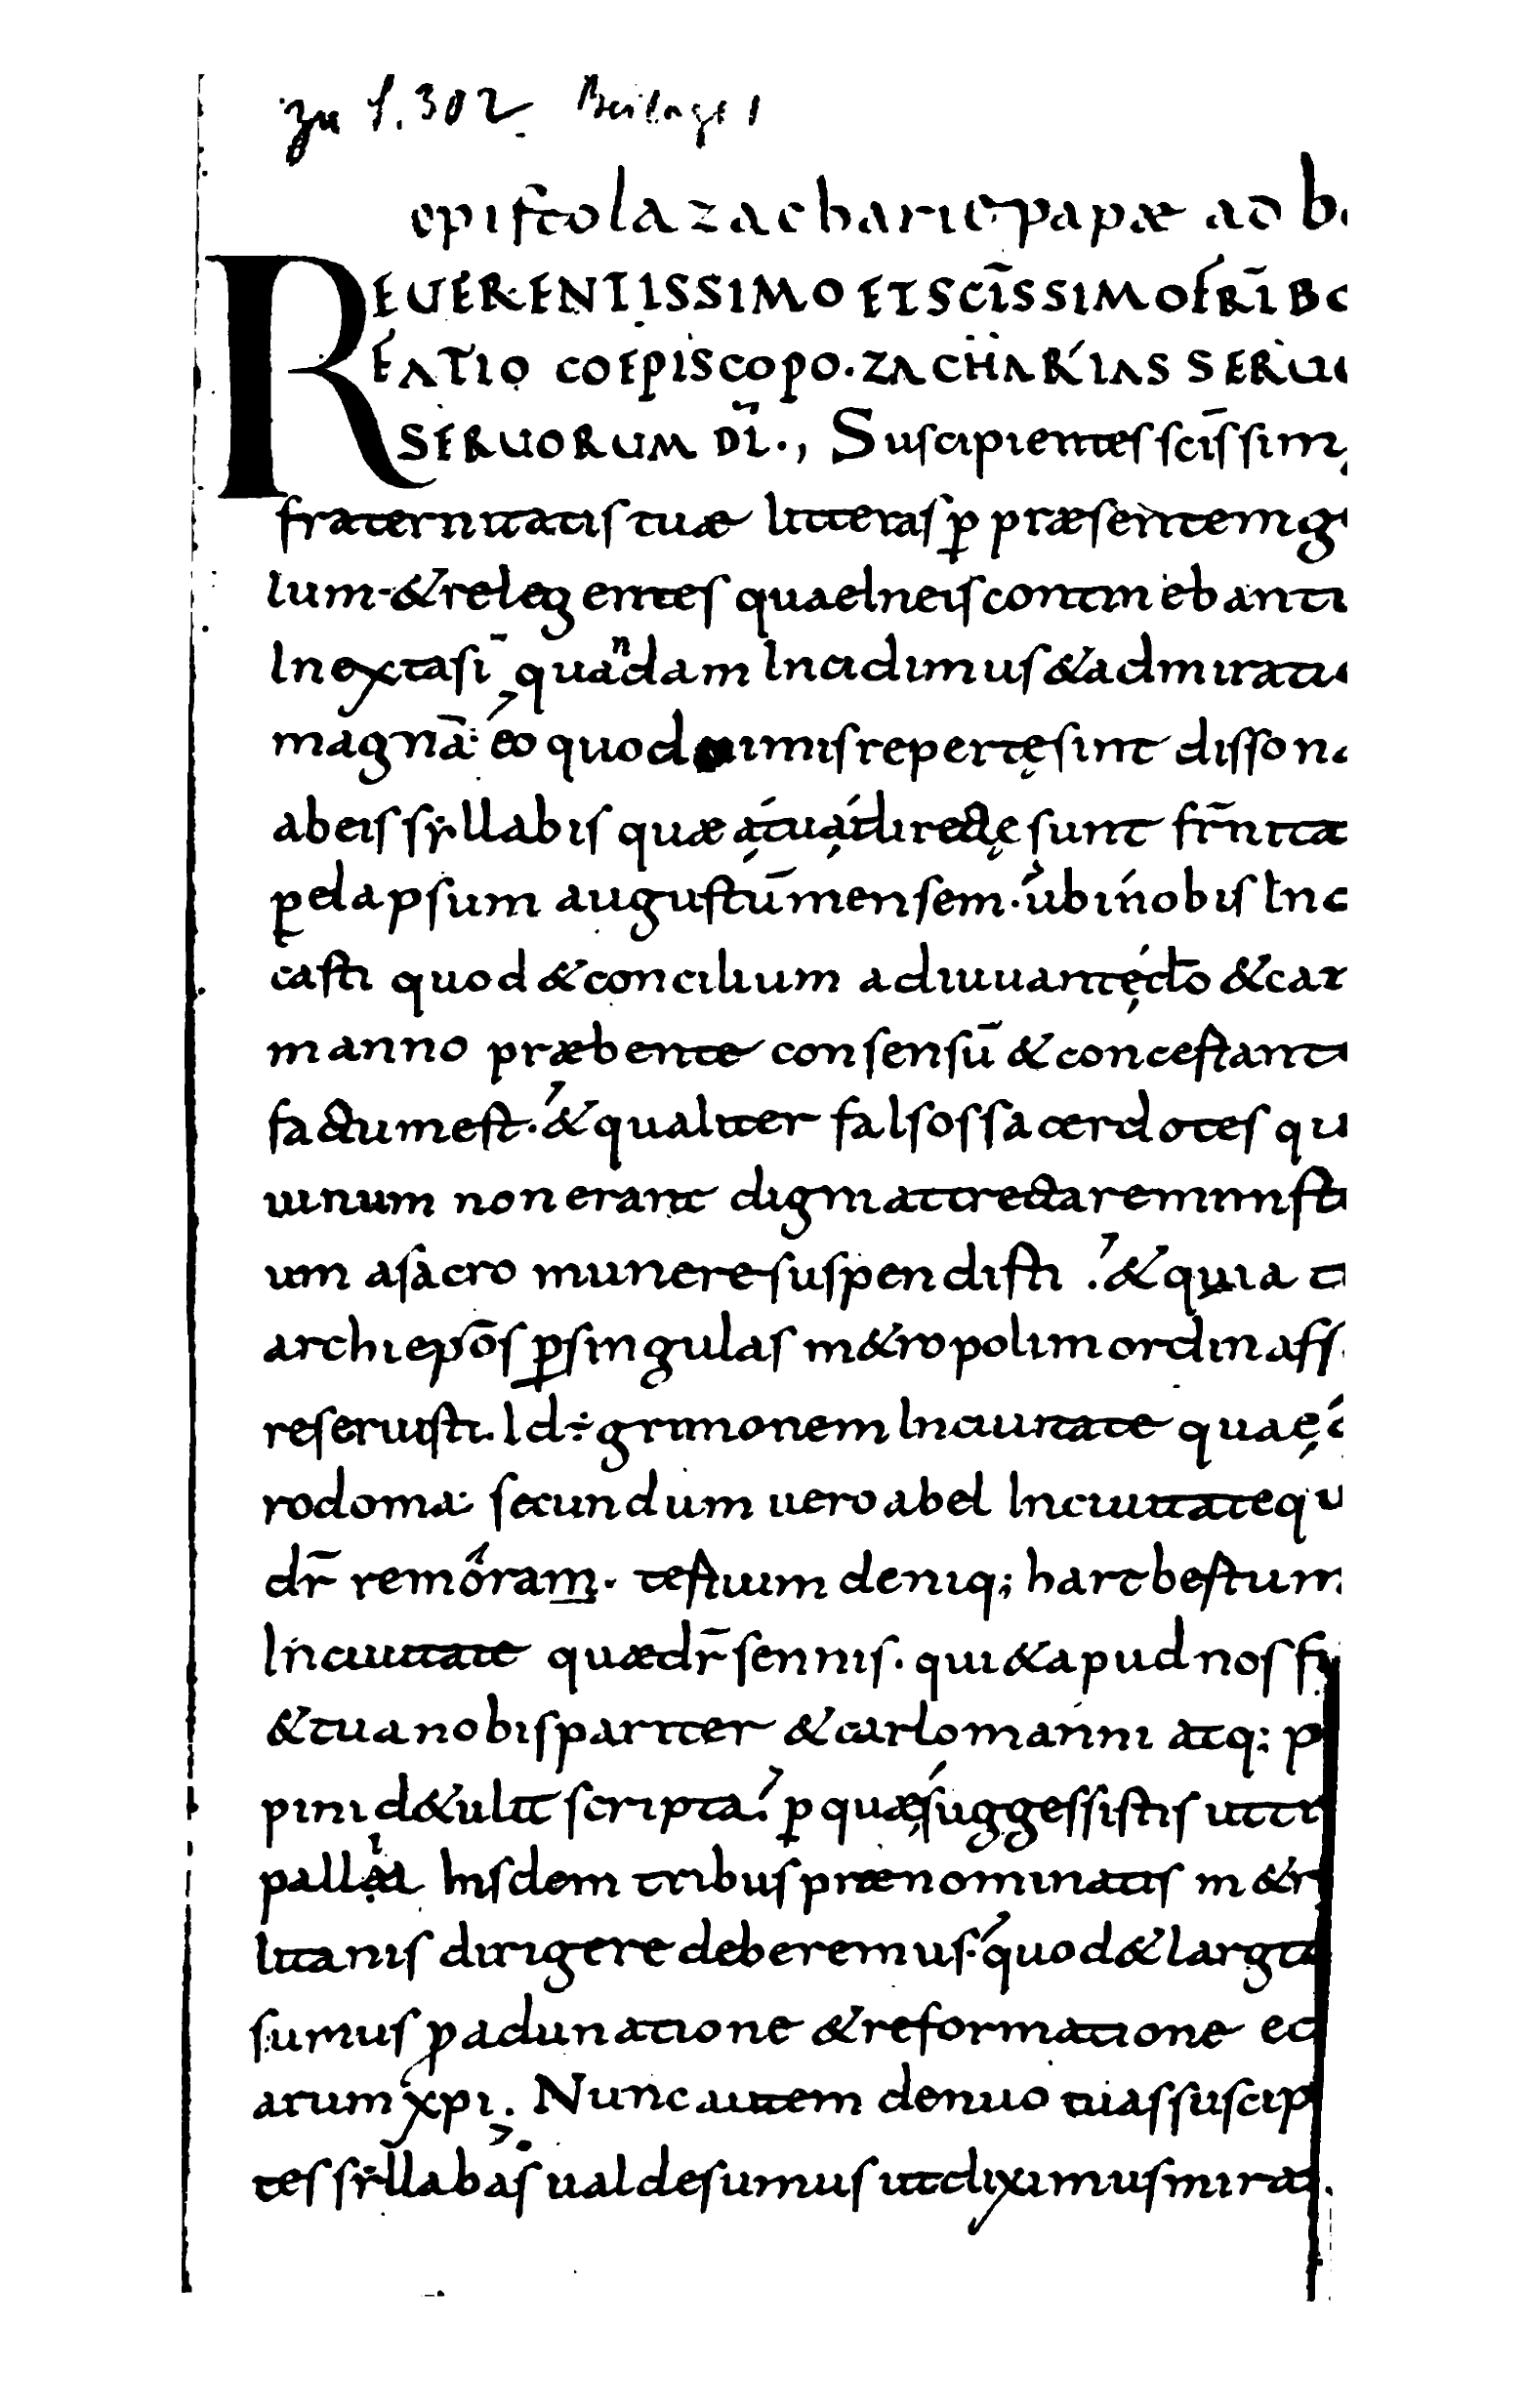 zu S. 302 Beilage 1
epistola zacharię papæ ad b
REUERENTISSIMO ET SCI̅SSIMO FRI̅ BO
FATIO COEPISCOPO. ZACHARIAS SERUU
SERUORUM DI̅., Suscipientes sci̅ssim
fraternitatis tuæ litteras p̲ præsentem g
lum. & relegentes quae In eis continebanti
In extasi quandam Incidimus & admirati
magnā. eo quod nimis repertę sint disson
ab eis syllabis quæ a tua directę sunt fr̅nita
p̲ elapsum augustū mensem. ubi nobis In
casti quod & concilium adiuuante do̅ & car
manno præbente consensū & contestant
factum est. & qualiter falsos sacerdotes qu
uinum non erant digni attrectare ministi
um a sacro munere suspendisti. & quia t
archiepo̅s p̲ singulas m&ropolim ordinass
reseruisti. Id ÷ grimonem In ciuitate quae
rodoma. secundum uero abel In ciuitate qu
dr̅ remoram. tertium deniq; hartbestum
In ciuitate quæ dr̅ sennis. qui & apud nos fu
& tua nobis pariter & carlomanni atq; p
pini d&ulit scripta. p̲ quæ suggessistis ut tri
pallia hisdem tribus prænominatis m&r
litanis dirigere deberemus. quod & largit
sumus p adunatione & reformatione ec
arum xpi. Nunc autem denuo tuas suscip
tes syllabas ualde sumus ut diximus mirat